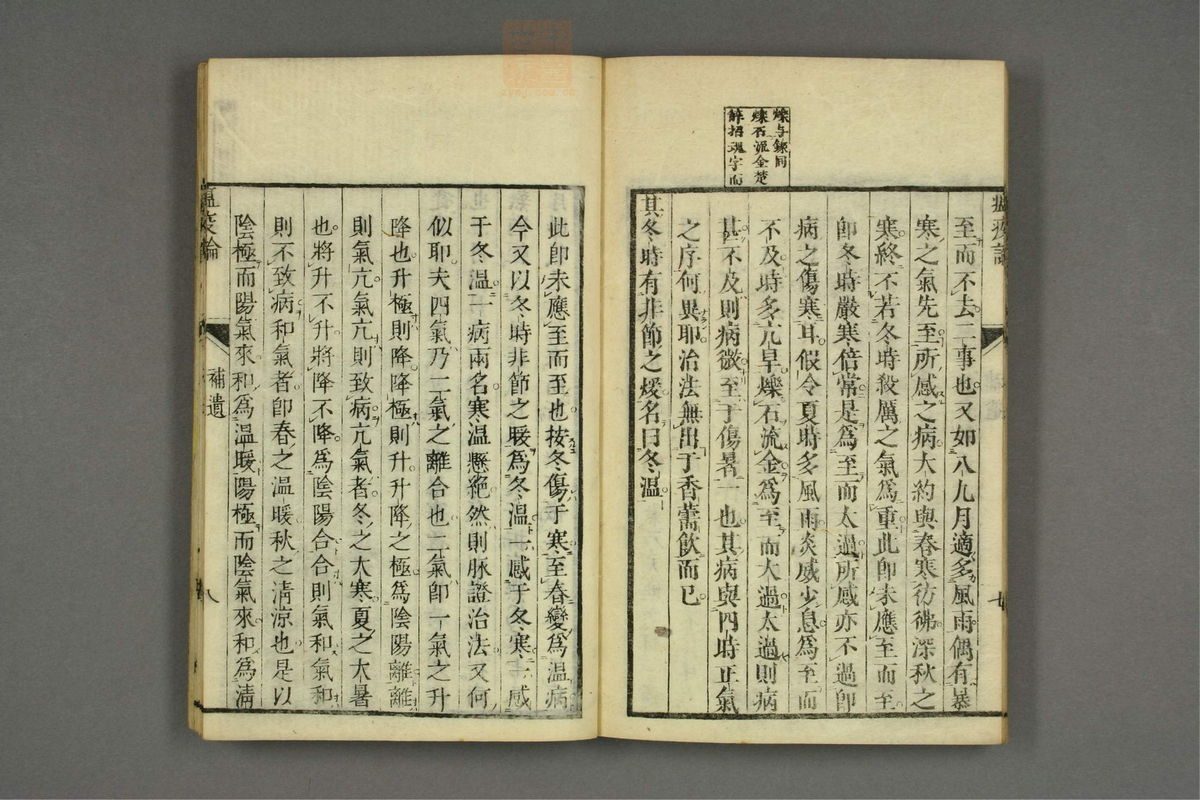 爍与鑠同
爍石流金楚
辞招魂字而
瘟疫論
至而不去二事也又如八九月適多風雨偶有暴
寒之氣先至所感之病大約與春寒彷彿深秋之
寒終不若冬時殺厲之氣爲重此卽未應至而至
卽冬時嚴寒倍常是爲至而太過所感亦不過卽
病之傷寒耳假令夏時多風雨炎威少息爲至而
不及時多亢旱爍石流金爲至而大過太過則病
甚不及則病微至于傷暑一也其病與四時正氣
之序何異耶治法無出于香薷飲而已
其冬時有非節之煖名曰冬溫
此卽未應至而至也按冬傷于寒至春變爲溫病
今又以冬時非節之暖爲冬溫一感于冬寒一感
于冬溫一病兩名寒溫懸絕然則脉證治法又何
似耶夫四氣乃二氣之離合也二氣卽一氣之升
降也升極則降降極則升升降之極爲陰陽離離
則氣亢氣亢則致病亢氣者冬之大寒夏之大暑
也將升不升將降不降爲陰陽合合則氣和氣和
則不致病和氣者卽春之溫暖秋之清涼也是以
陰極而陽氣來和爲溫暖陽極而陰氣來和爲清
瘟疫論
補遺
八